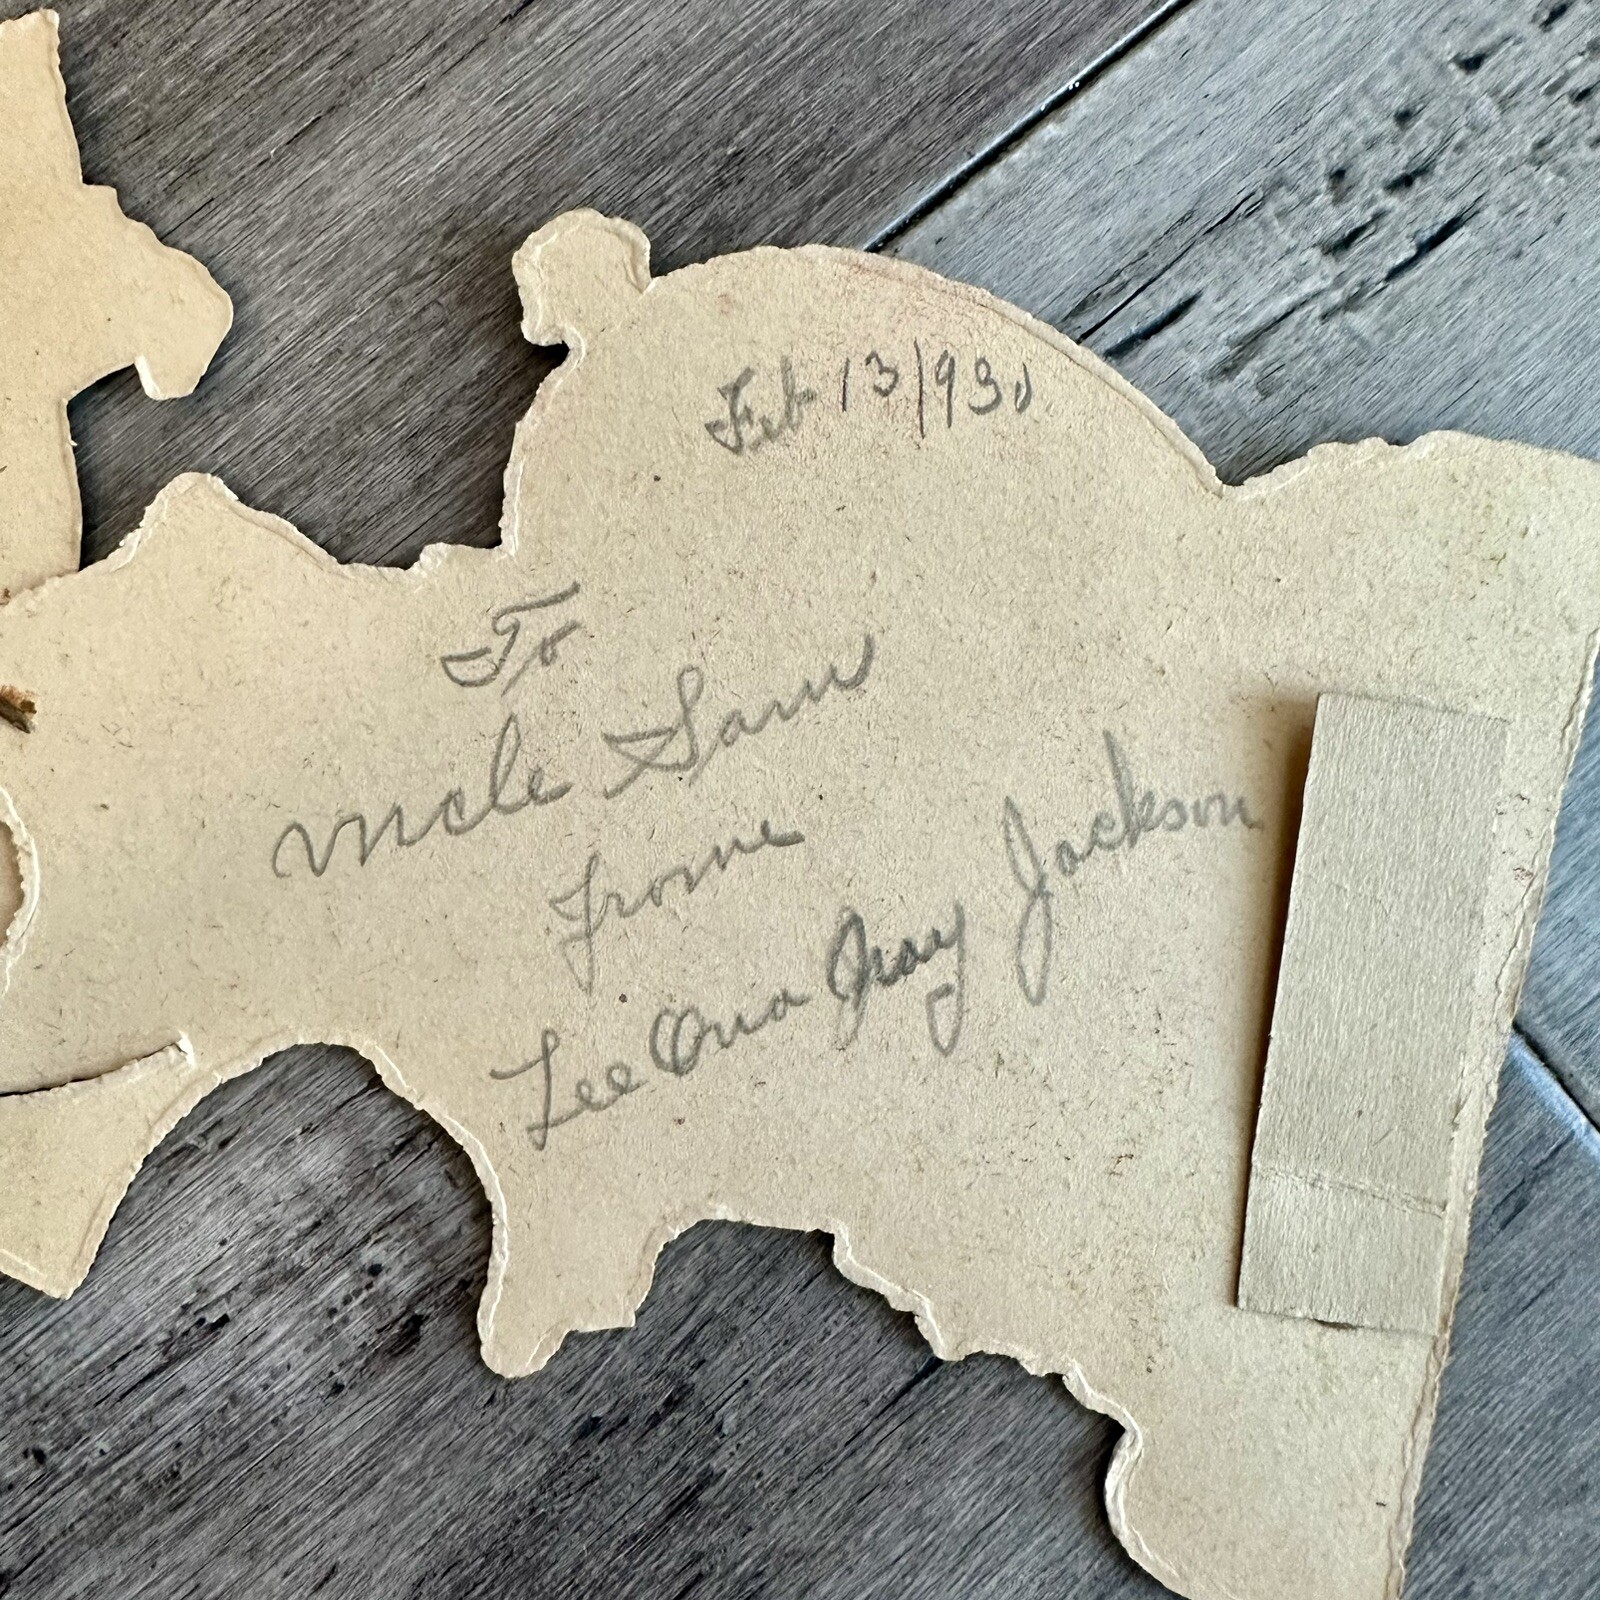 Feb 13/930
To
Uncle Sam
frome
Lee Ona Jackson